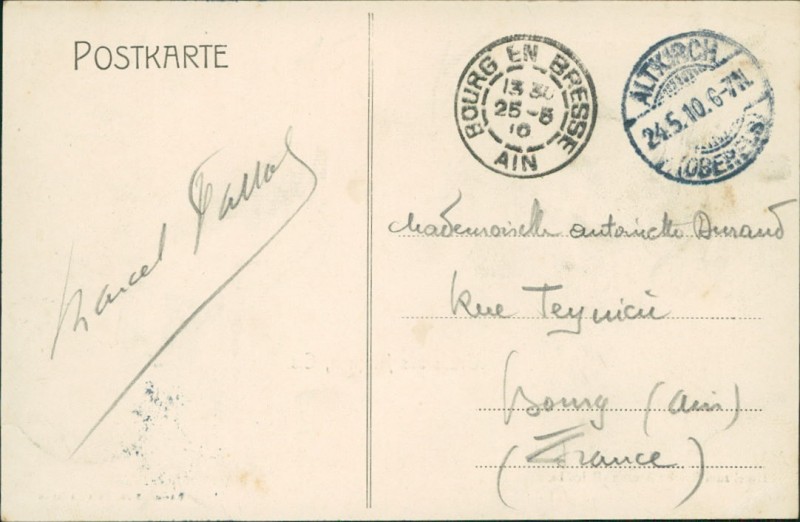 POSTKARTE
BOURG EN BRESSE
13 30
25-5
10
AIN
ALTKIRCH
24.5.10.6-7N.
(OBERELS)
Marcel
Mademoiselle Antoinette Durand
Rue Teynière
Bourg (Ain)
(France)